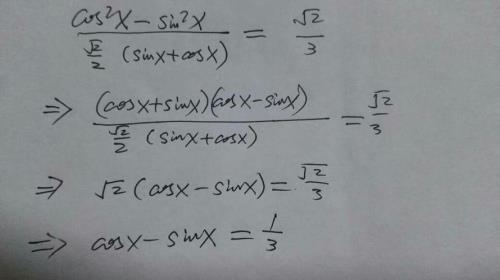 (cos²x − sin²x) / (√2/2 (sinx+cosx)) = √2/3
⇒ (cosx+sinx)(cosx−sinx) / (√2/2 (sinx+cosx)) = √2/3
⇒ √2 (cosx−sinx) = √2/3
⇒ cosx−sinx = 1/3